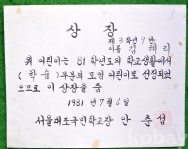 상장
제 3학년 9반
이름 김혜리
위 어린이는 81 학년도의 학교생활에서
(학습) 부문의 모범 어린이로 선정되었
으므로 이 상장을 줌
1981 년 7월 6일
서울매포국민학교장 안춘섭